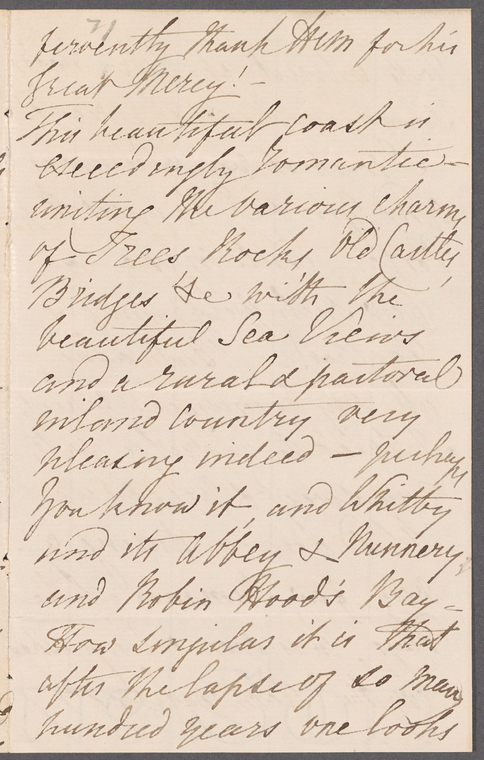 fervently thank Him for his
great Mercy! -
This beautiful coast is
exceedingly romantic -
uniting the various charms
of Trees Rocks Old Castles,
Bridges &c with the
beautiful Sea Views
and a rural & pastoral
inland country very
pleasing indeed - perhaps
you know it, and Whitby
and its Abbey & Nunnery,
and Robin Hood's Bay -
How singular it is that
after the lapse of so many
hundred years one looks